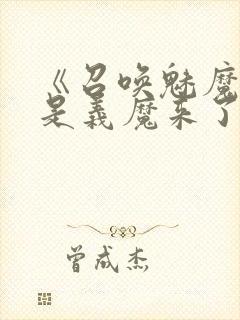 《召唤魅魔
是义魔来了
曾成杰